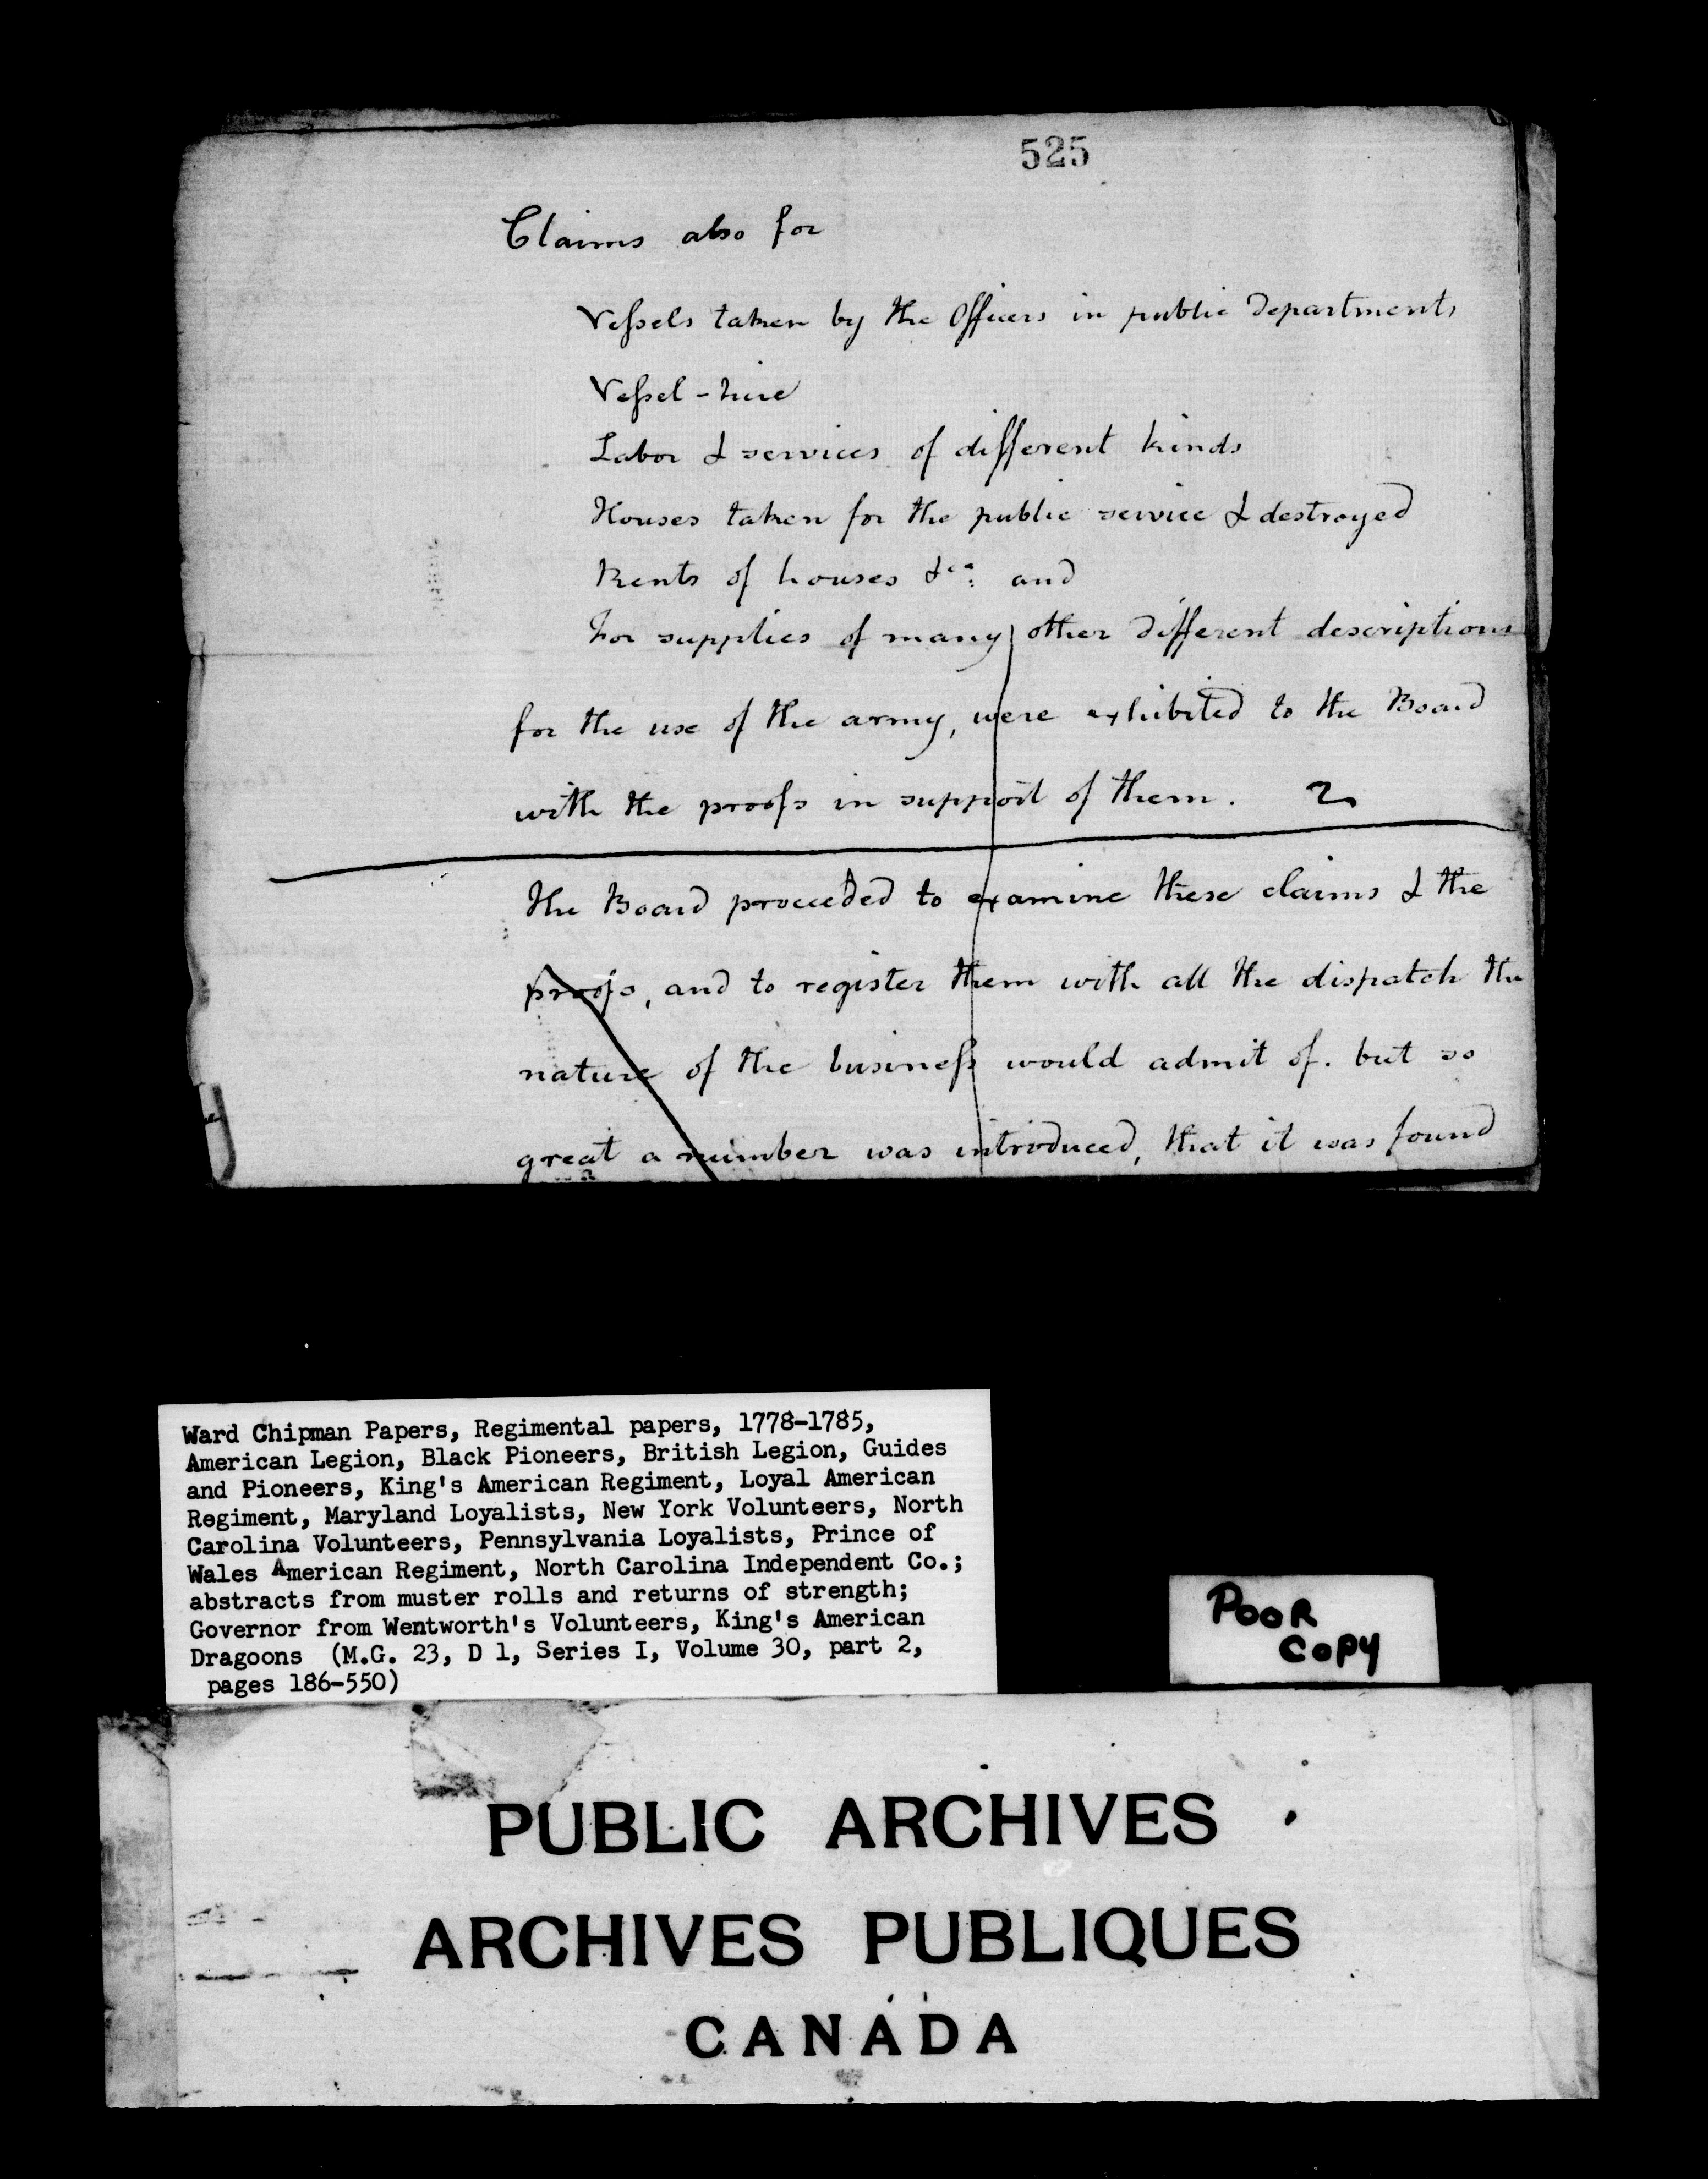 525
Claims also for
Vessels taken by the Officers in public Departments
Vessel-hire
Labor & services of different kinds
Houses taken for the public service & destroyed
Rents of houses &ca: and
For supplies of many other different descriptions
for the use of the army, were exhibited to the Board
with the proofs in support of them. 2
The Board proceeded to examine these claims & the
proofs, and to register them with all the dispatch the
nature of the business would admit of. but so
great a number was introduced, that it was found
Ward Chipman Papers, Regimental papers, 1778-1785,
American Legion, Black Pioneers, British Legion, Guides
and Pioneers, King's American Regiment, Loyal American
Regiment, Maryland Loyalists, New York Volunteers, North
Carolina Volunteers, Pennsylvania Loyalists, Prince of
Wales American Regiment, North Carolina Independent Co.;
abstracts from muster rolls and returns of strength;
Governor from Wentworth's Volunteers, King's American
Dragoons (M.G. 23, D 1, Series I, Volume 30, part 2,
pages 186-550)
POOR
COPY
PUBLIC ARCHIVES
ARCHIVES PUBLIQUES
CANADA